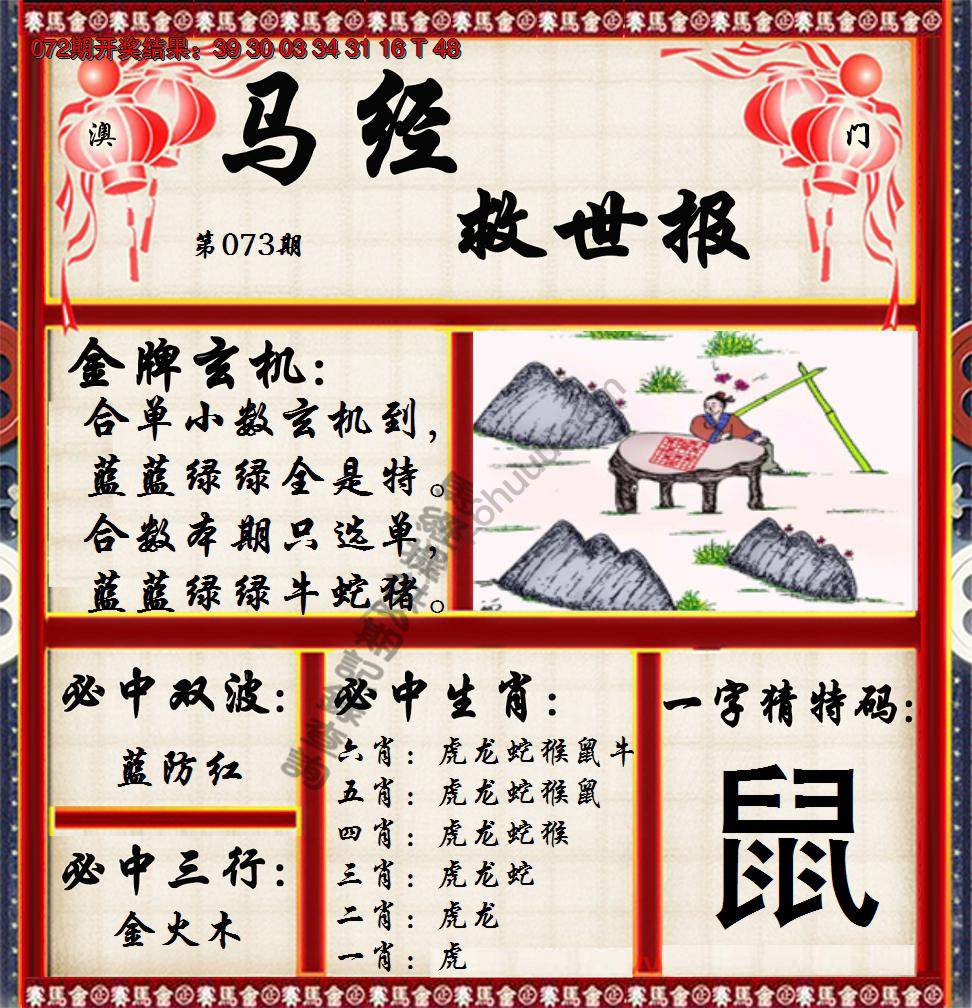 賽馬會
072期开奖结果：39 30 03 34 31 16 T 48
澳
门
马经
救世报
第073期
金牌玄机：
合单小数玄机到，
蓝蓝绿绿全是特。
合数本期只选单，
蓝蓝绿绿牛蛇猪。
必中双波：
蓝防红
必中三行：
金火木
必中生肖：
六肖：虎龙蛇猴鼠牛
五肖：虎龙蛇猴鼠
四肖：虎龙蛇猴
三肖：虎龙蛇
二肖：虎龙
一肖：虎
一字猜特码：
鼠